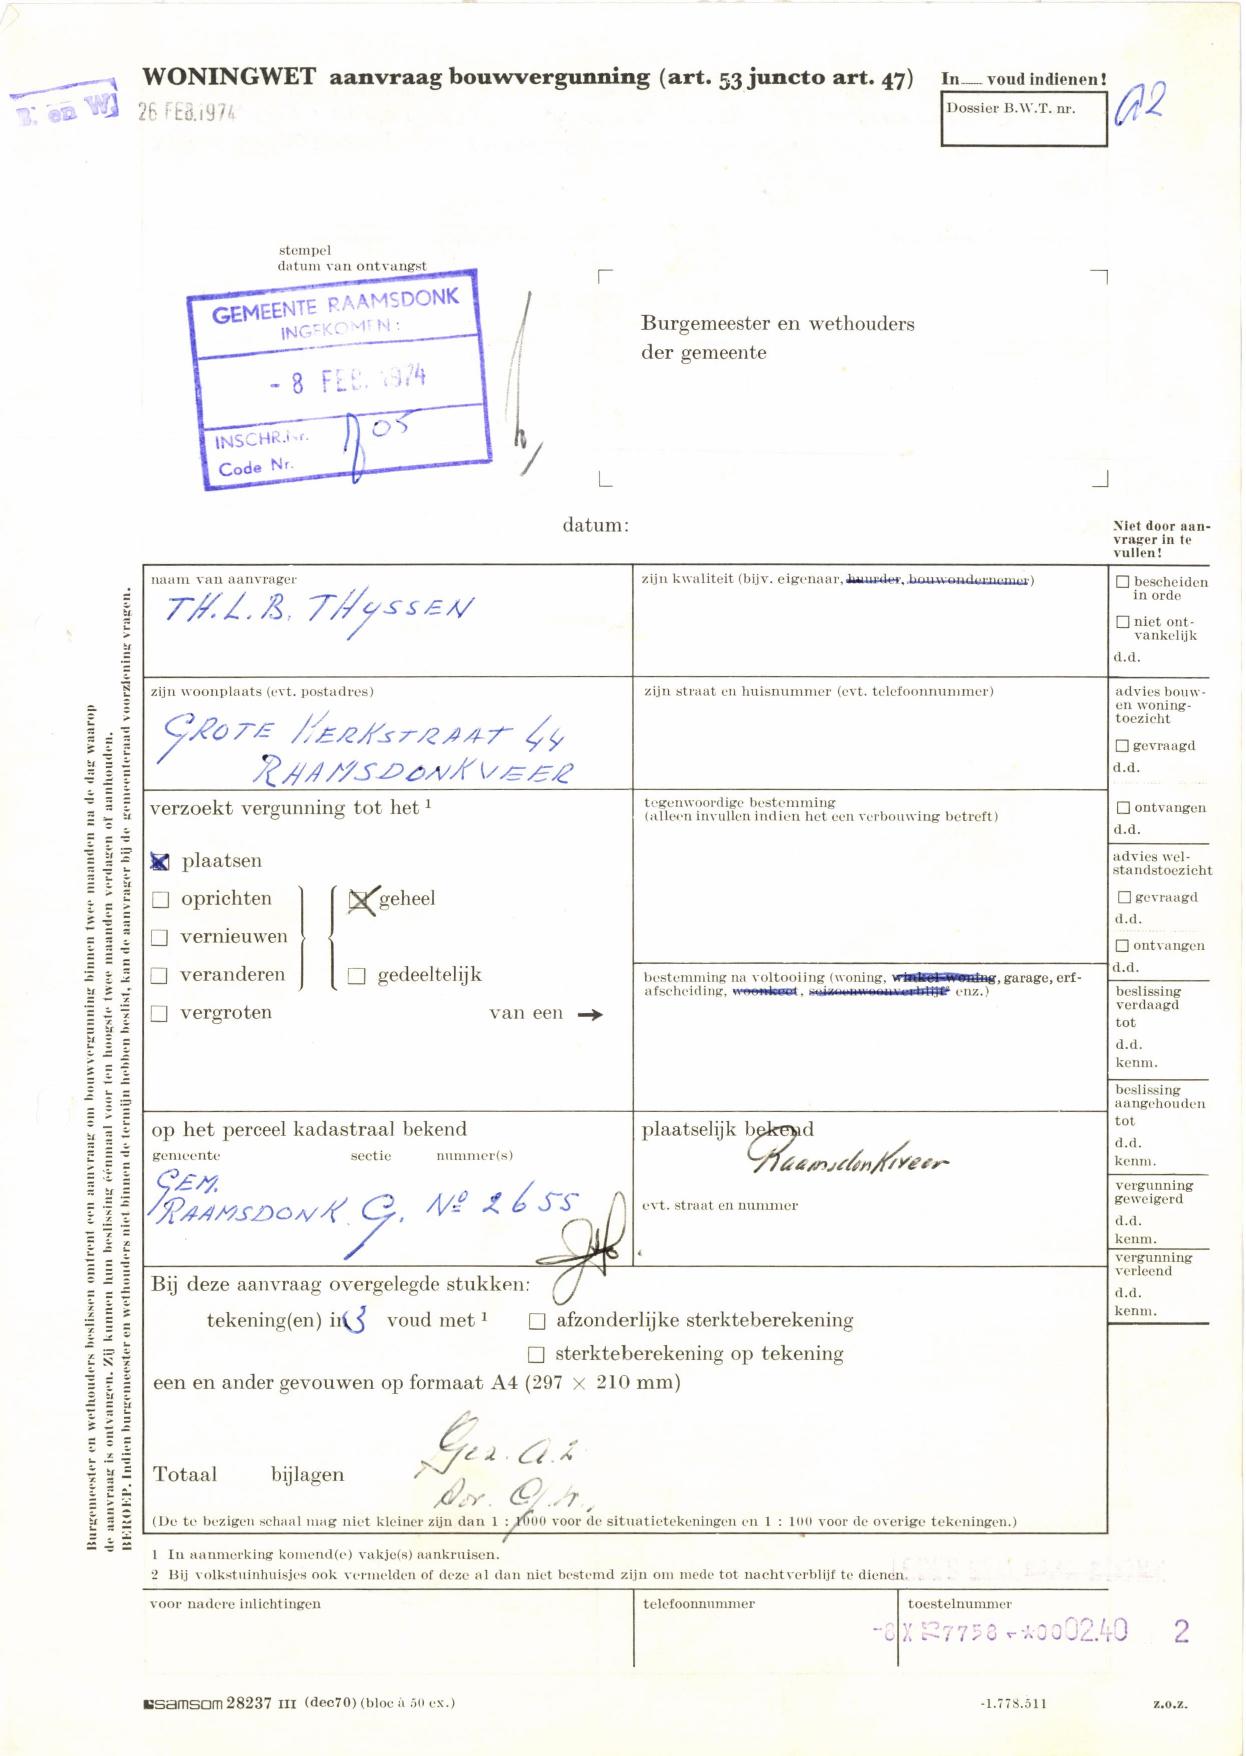 WONINGWET aanvraag bouwvergunning (art. 53 juncto art. 47)
In voud indienen!
Dossier B.W.T. nr.
A2
B. en W.
26 FEB. 1974
stempel
datum van ontvangst
GEMEENTE RAAMSDONK
INGEKOMEN:
- 8 FEB. 1974
INSCHR.Nr. 05
Code Nr.
Burgemeester en wethouders
der gemeente
datum:
Niet door aan-
vrager in te
vullen!
naam van aanvrager
TH. L. B. THYSSEN
zijn kwaliteit (bijv. eigenaar, huurder, bouwondernemer)
zijn woonplaats (evt. postadres)
GROTE KERKSTRAAT 44
RAAMSDONKVEER
zijn straat en huisnummer (evt. telefoonnummer)
verzoekt vergunning tot het 1
plaatsen
oprichten
geheel
vernieuwen
veranderen
gedeeltelijk
vergroten
van een →
tegenwoordige bestemming
(alleen invullen indien het een verbouwing betreft)
bestemming na voltooiing (woning, winkel-woning, garage, erf-
afscheiding, woonkeet, seizoenwoonverblijf² enz.)
op het perceel kadastraal bekend
gemeente sectie nummer(s)
GEM.
RAAMSDONK G. Nº 2655
plaatselijk bekend
Raamsdonksveer
evt. straat en nummer
Bij deze aanvraag overgelegde stukken:
tekening(en) in 3 voud met 1
afzonderlijke sterkteberekening
sterkteberekening op tekening
een en ander gevouwen op formaat A4 (297 × 210 mm)
Gez. A.2
Totaal bijlagen
(De te bezigen schaal mag niet kleiner zijn dan 1 : 1000 voor de situatietekeningen en 1 : 100 voor de overige tekeningen.)
1 In aanmerking komend(e) vakje(s) aankruisen.
2 Bij volkstuinhuisjes ook vermelden of deze al dan niet bestemd zijn om mede tot nachtverblijf te dienen.
voor nadere inlichtingen
telefoonnummer
toestelnummer
7758 *0002.40 2
samsom 28237 III (dec70) (bloc à 50 ex.)
-1.778.511
z.o.z.
bescheiden
in orde
niet ont-
vankelijk
d.d.
advies bouw-
en woning-
toezicht
gevraagd
d.d.
ontvangen
d.d.
advies wel-
standstoezicht
gevraagd
d.d.
ontvangen
d.d.
beslissing
verdaagd
tot
d.d.
kenm.
beslissing
aangehouden
tot
d.d.
kenm.
vergunning
geweigerd
d.d.
kenm.
vergunning
verleend
d.d.
kenm.
Burgemeester en wethouders beslissen omtrent een aanvraag om bouwvergunning binnen twee maanden na de dag waarop
de aanvraag is ontvangen. Zij kunnen hun beslissing éénmaal voor ten hoogste twee maanden verdagen of aanhouden.
BEROEP. Indien burgemeester en wethouders niet binnen de termijn hebben beslist, kan de aanvrager bij de gemeenteraad voorziening vragen.